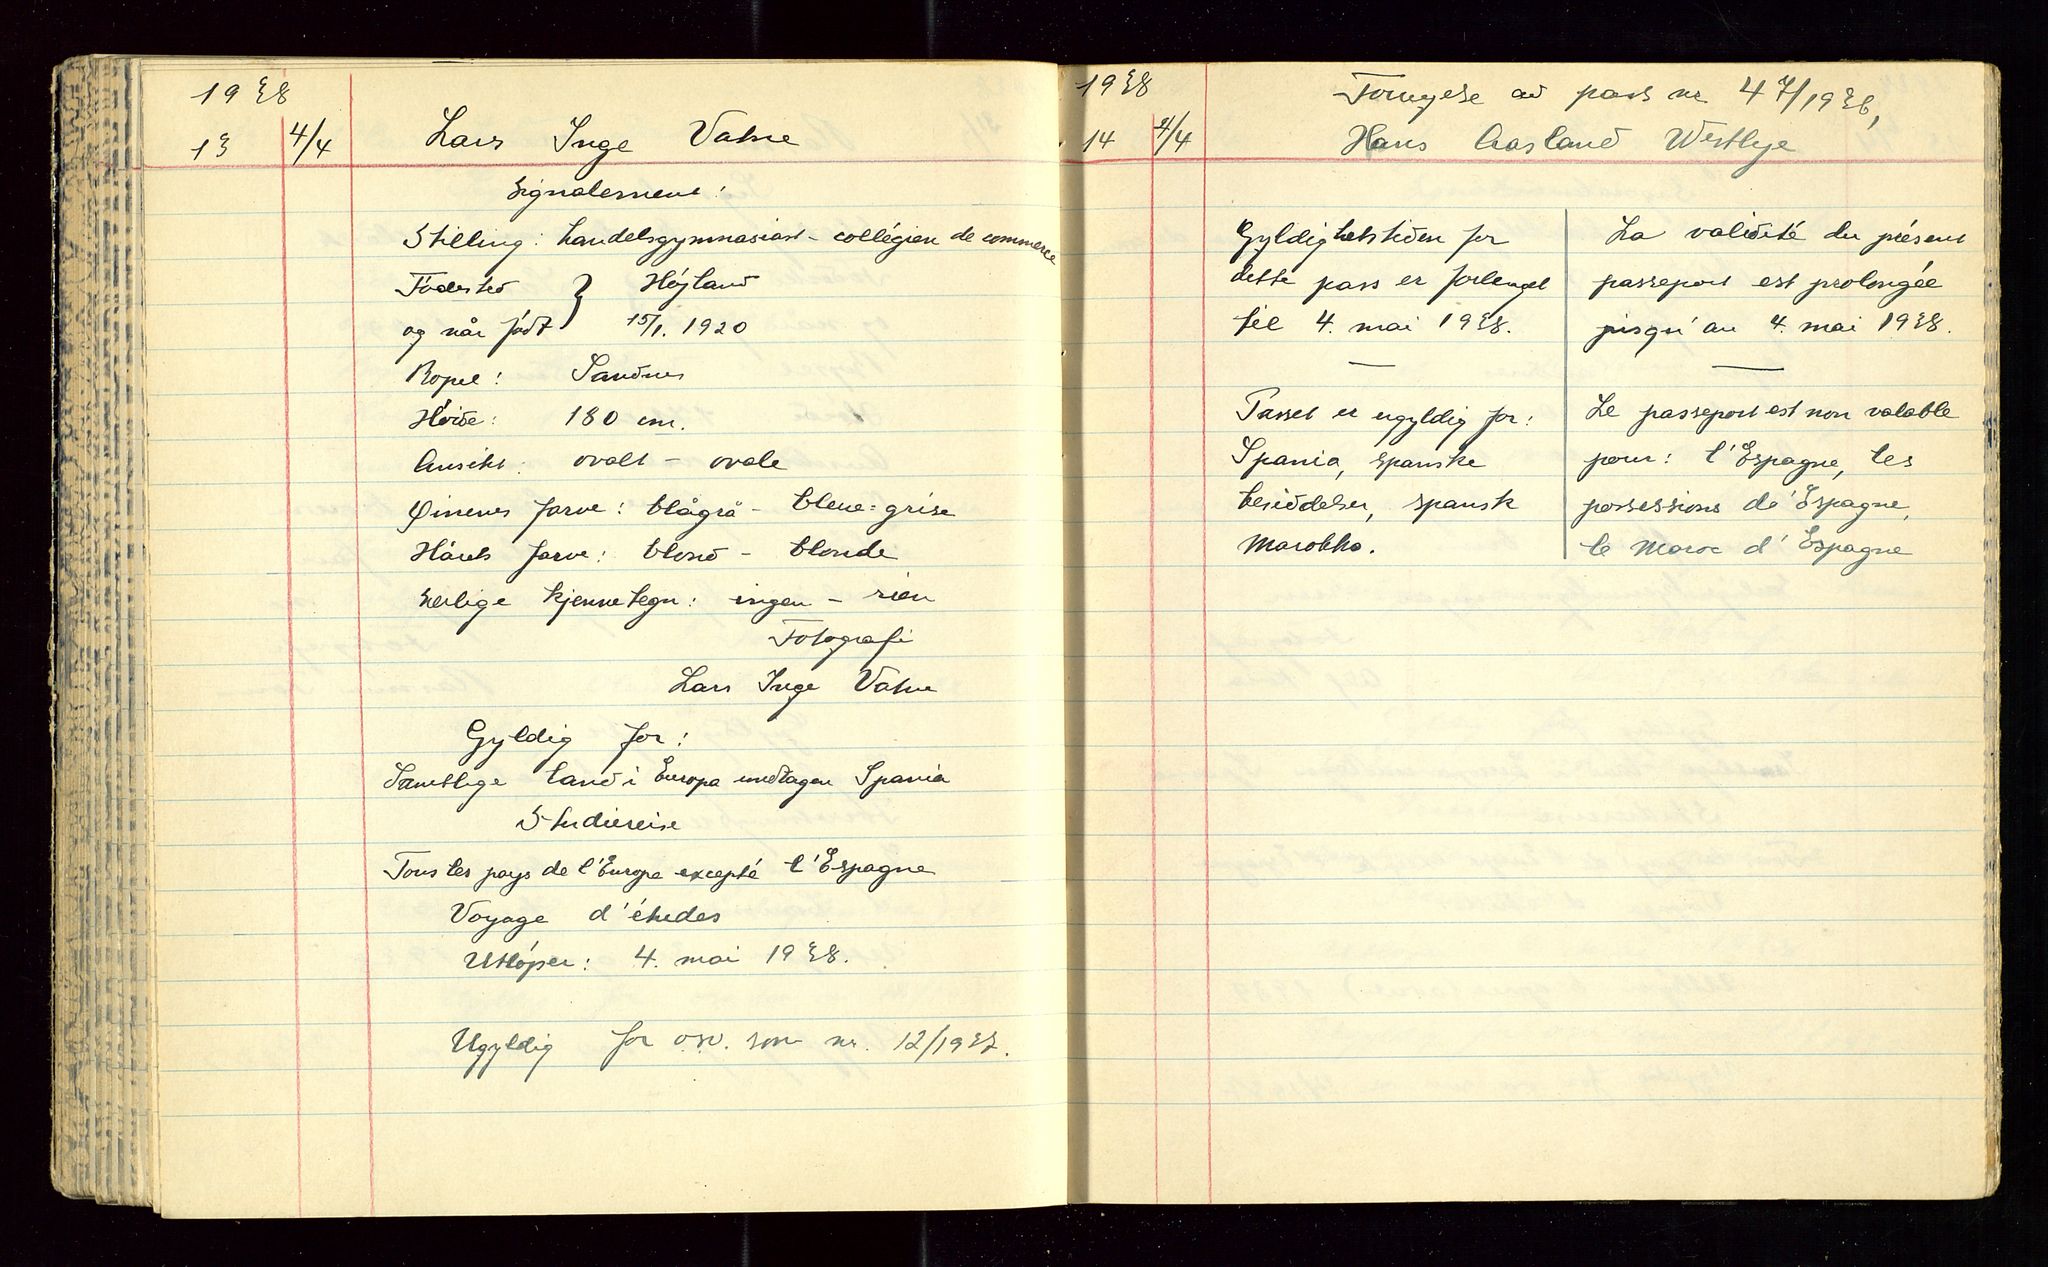 1938
13 4/4 Lars Inge Vatne
Signalement:
Stilling: handelsgymnasiast - collégien de commerce
Födested } Høyland
og når født 15/1. 1920
Bopel: Sandnes
Høide: 180 cm.
Ansikt: ovalt - ovale
Øinenes farve: blågrå - bleue=grise
Hårets farve: blond - blonde
Serlige kjennetegn: ingen - rien
Fotografi
Lars Inge Vatne
Gyldig for:
Samtlige land i Europa undtagen Spania
Studiereise
Tous les pays de l'Europe excepté l'Espagne
Voyage d'études
Utløper: 4. mai 1938.
Ugyldig for osv. som nr. 12/1937.
1938 Fornyelse av pass nr 47/1936,
14 4/4 Hans Aasland Westbye
Gyldighetstiden for
dette pass er forlenget
til 4. mai 1938.
Passet er ugyldig for:
Spania, spanske
besiddelser, spansk
Marokko.
La validité du présent
passeport est prolongée
jusqu'au 4. mai 1938.
Le passeport est non valable
pour: l'Espagne, les
possessions de'Espagne,
le Maroc d'Espagne